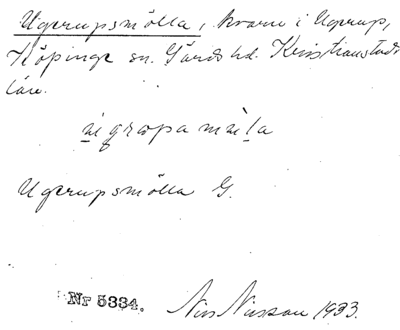 Ugerupsmölla, kvarn i Ugerup,
Köpinge sn. Gärds hd. Kristianstads
län.
Ugerupsmölla G.
Nr 5334.
Nils Nilsson 1933.